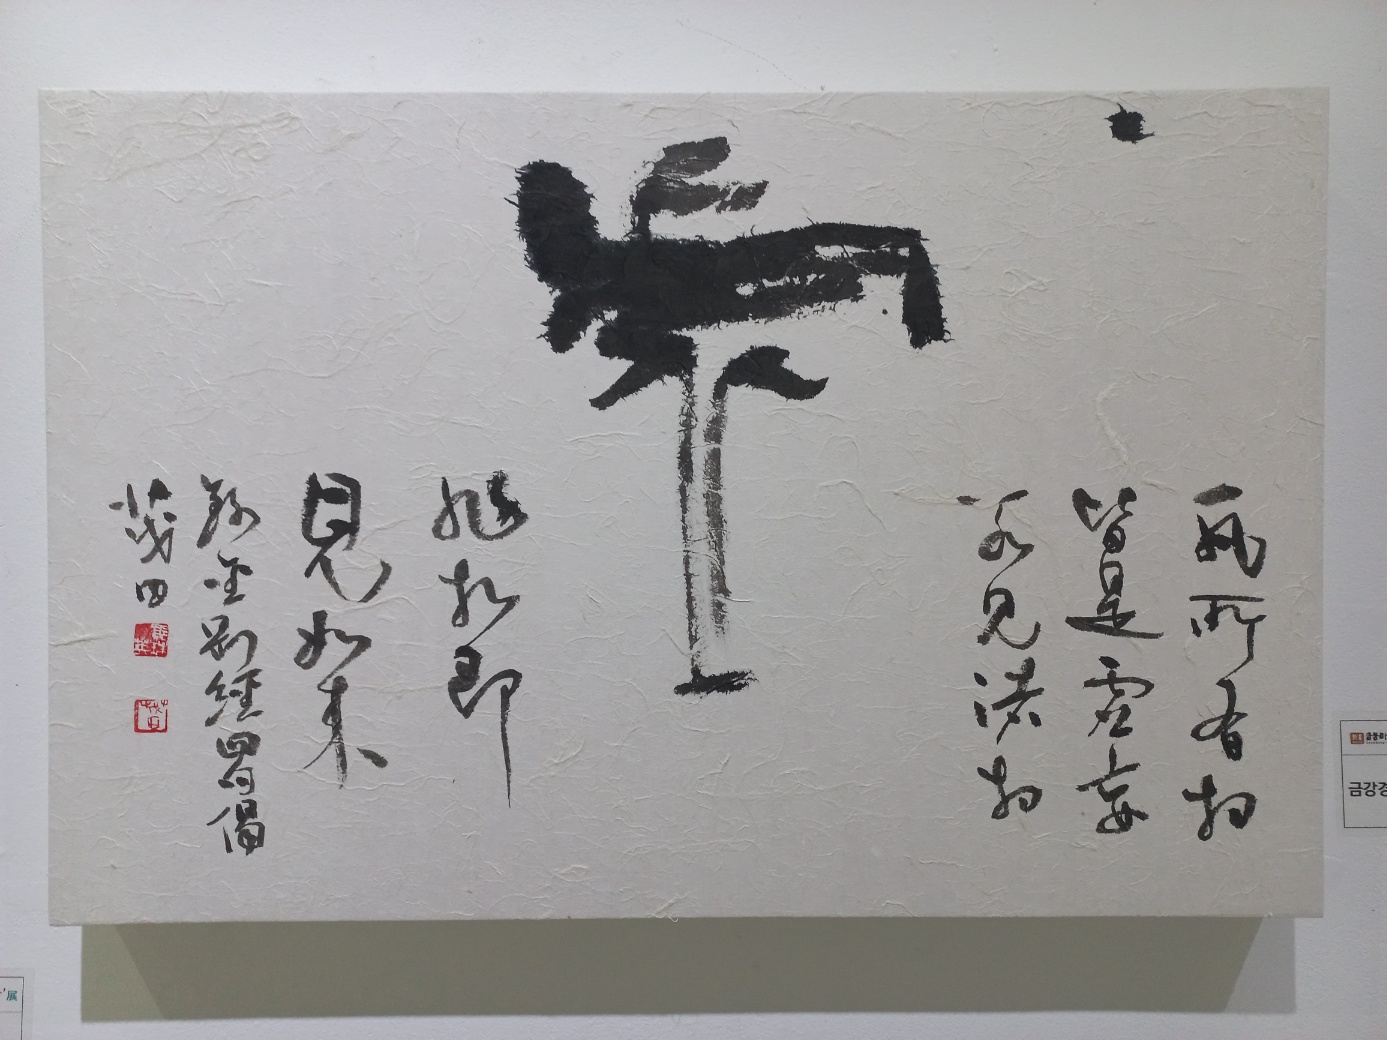 凡所有相
皆是虛妄
若見諸相
非相卽
見如來
錄金剛經四句偈
茂田
금강경
展